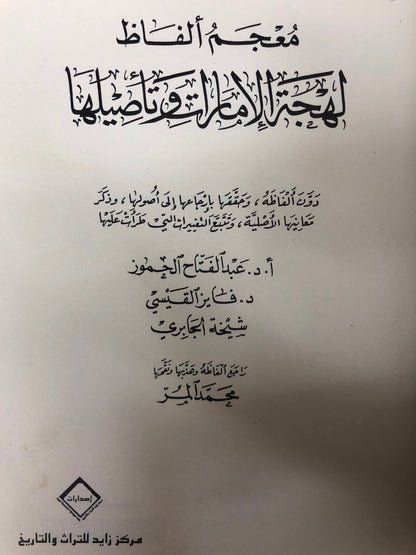 مُعْجَمُ ألفَاظ
لهجَة الإمَارات وَتأصِيلهَا
دَوَّنَ ألفَاظَهُ، وَحَقَّقَهَا بإرجَاعهَا إلىَ أصُولهَا، وذكَرَ
مَعَانيهَا الأصْليَّة، وَتتَبَّعَ التغييرَات التي طرَأت عَليهَا
أ.د. عَبد الفتَّاح الحموز
د. فَايز القَيسي
شيْخَة الجَابري
رَاجَعَ ألفَاظهُ وَهذَّبهَا وَنقَّحهَا
محمَّد المُرّ
إصدارات
مركز زايد للتراث والتاريخ